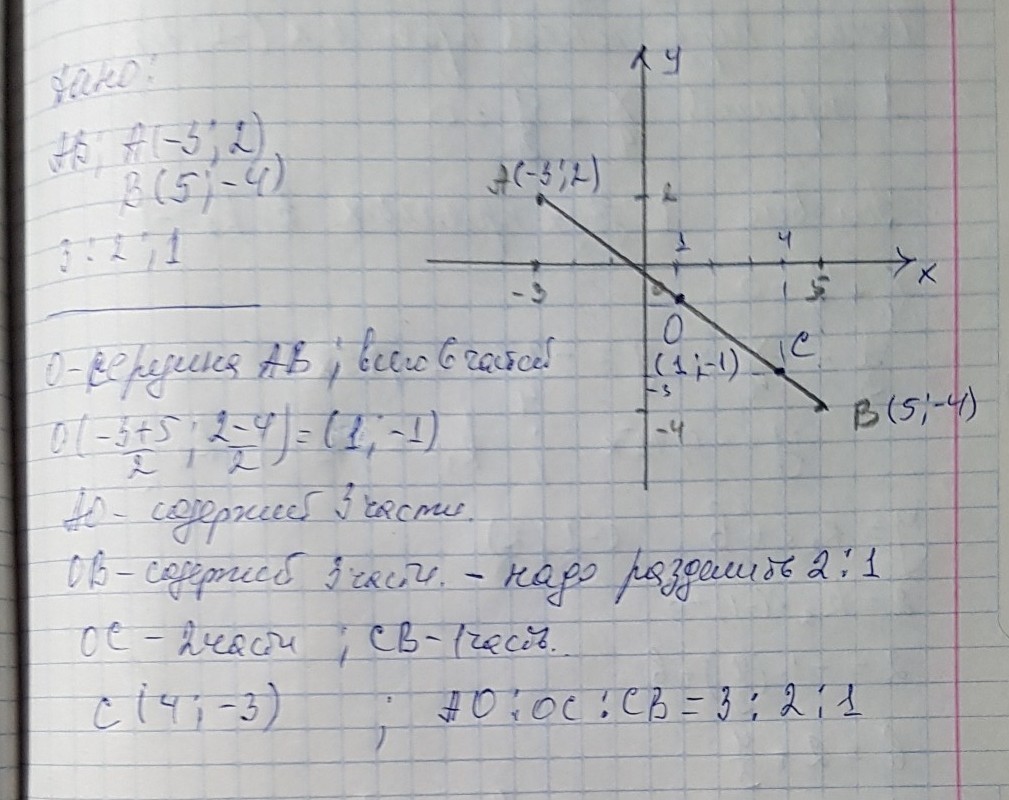 Дано:
AB; A(-3; 2)
B(5; -4)
3:2:1
O - середина AB; всего 6 частей
O(-3+5/2; 2-4/2) = (1; -1)
AO - содержит 3 части.
OB - содержит 3 части. - надо разделить 2:1
OC - 2 части; CB - 1 часть.
C(4; -3); AO:OC:CB = 3:2:1
y
A(-3; 2)
2
1 4
x
-3 0 1 5
O
C
(1; -1)
-3
B(5; -4)
-4